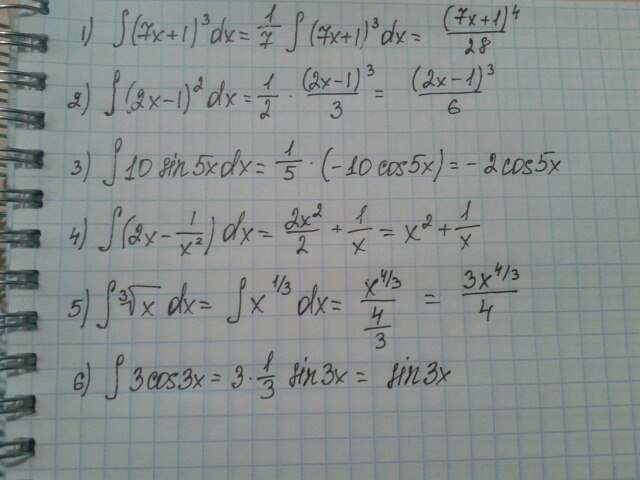 1) ∫(7x+1)³dx = 1/7 ∫(7x+1)³dx = (7x+1)⁴/28
2) ∫(2x-1)²dx = 1/2 · (2x-1)³/3 = (2x-1)³/6
3) ∫10 sin5xdx = 1/5 · (-10 cos5x) = -2cos5x
4) ∫(2x - 1/x²) dx = 2x²/2 + 1/x = x² + 1/x
5) ∫∛x dx = ∫x^(1/3) dx = x^(4/3)/(4/3) = 3x^(4/3)/4
6) ∫3cos3x = 3 · 1/3 sin3x = sin3x